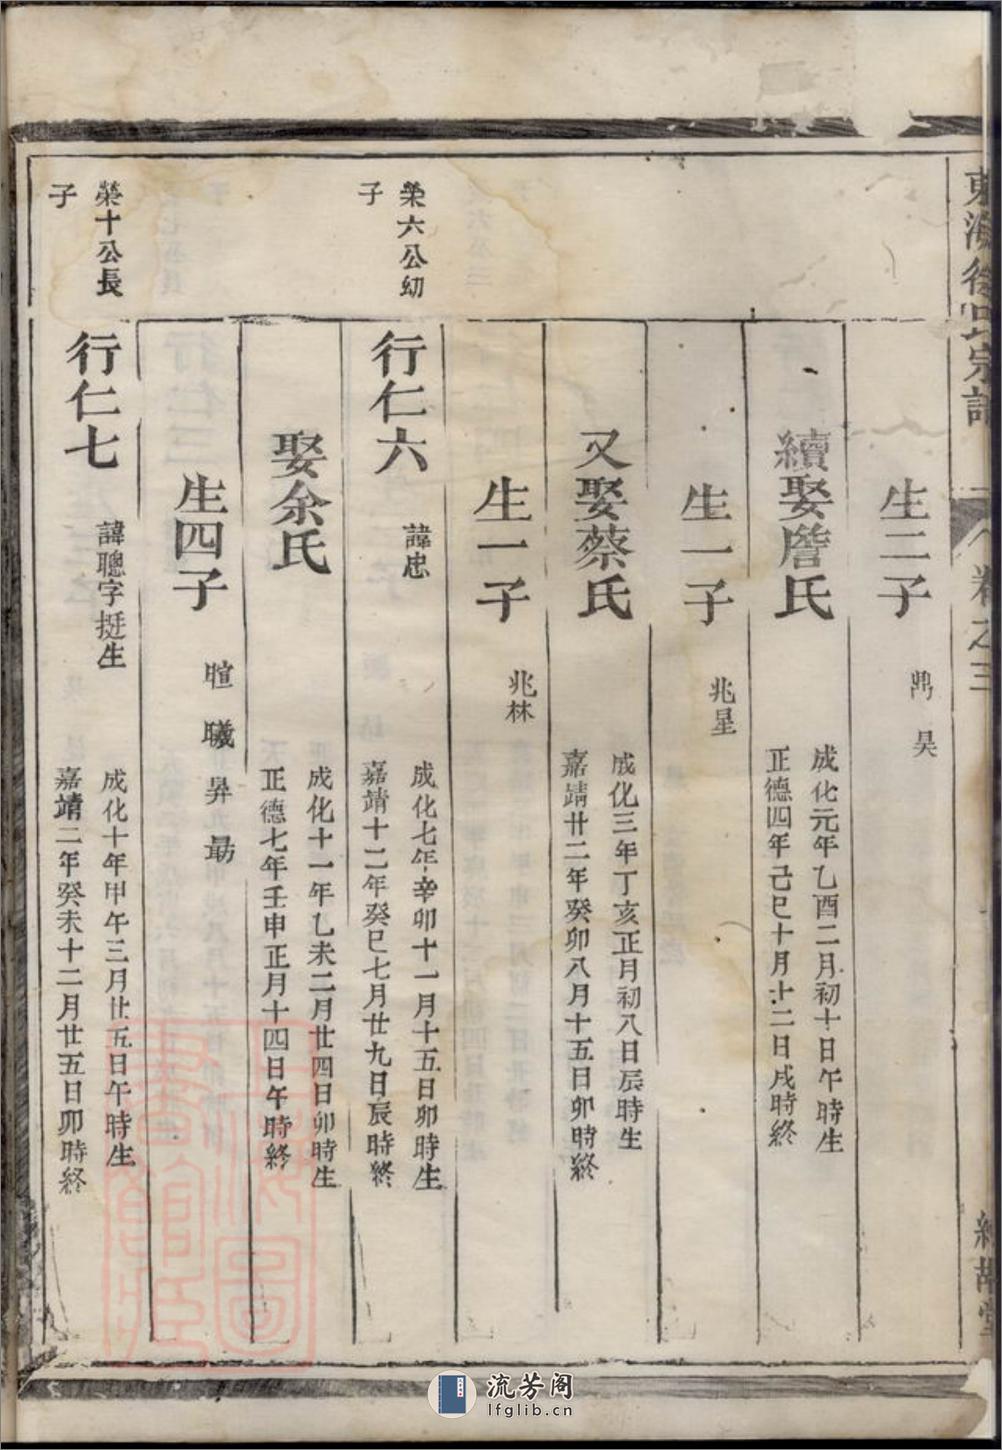 東海徐氏宗譜
卷之三
生二子
鼎 昊
續娶詹氏
成化元年乙酉二月初十日午時生
正德四年己巳十月十二日戌時終
生一子
兆星
又娶蔡氏
成化三年丁亥正月初八日辰時生
嘉靖廿二年癸卯八月十五日卯時終
生一子
兆林
榮六公幼
子
行仁六
諱忠
成化七年辛卯十一月十五日卯時生
嘉靖十二年癸巳七月廿九日辰時終
娶余氏
成化十一年乙未二月廿四日卯時生
正德七年壬申正月十四日午時終
生四子
暄 曦 昇 勗
榮十公長
子
行仁七
諱聰字挺生
成化十年甲午三月廿五日午時生
嘉靖二年癸未十二月廿五日卯時終
流芳阁
lfglib.cn